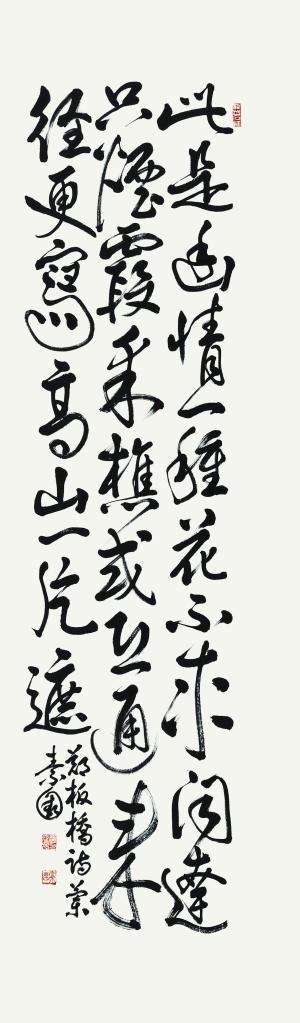 此是幽情一種花不求聞達
只煙霞采樵或恐通来
徑更寫高山一片遮
鄭板橋詩蘭